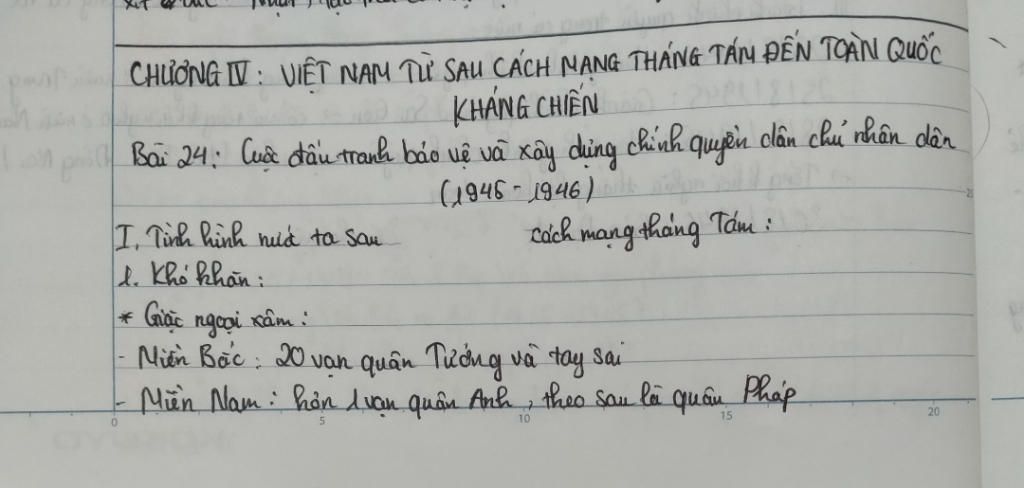 CHƯƠNG IV : VIỆT NAM TỪ SAU CÁCH MẠNG THÁNG TÁM ĐẾN TOÀN QUỐC
KHÁNG CHIẾN
Bài 24 : Cuộc đấu tranh bảo vệ và xây dựng chính quyền dân chủ nhân dân
(1945 - 1946)
I. Tình hình nước ta sau cách mạng tháng Tám :
1. Khó khăn :
* Giặc ngoại xâm :
- Miền Bắc : 20 vạn quân Tưởng và tay sai
- Miền Nam : hơn 1 vạn quân Anh , theo sau là quân Pháp
0 5 10 15 20